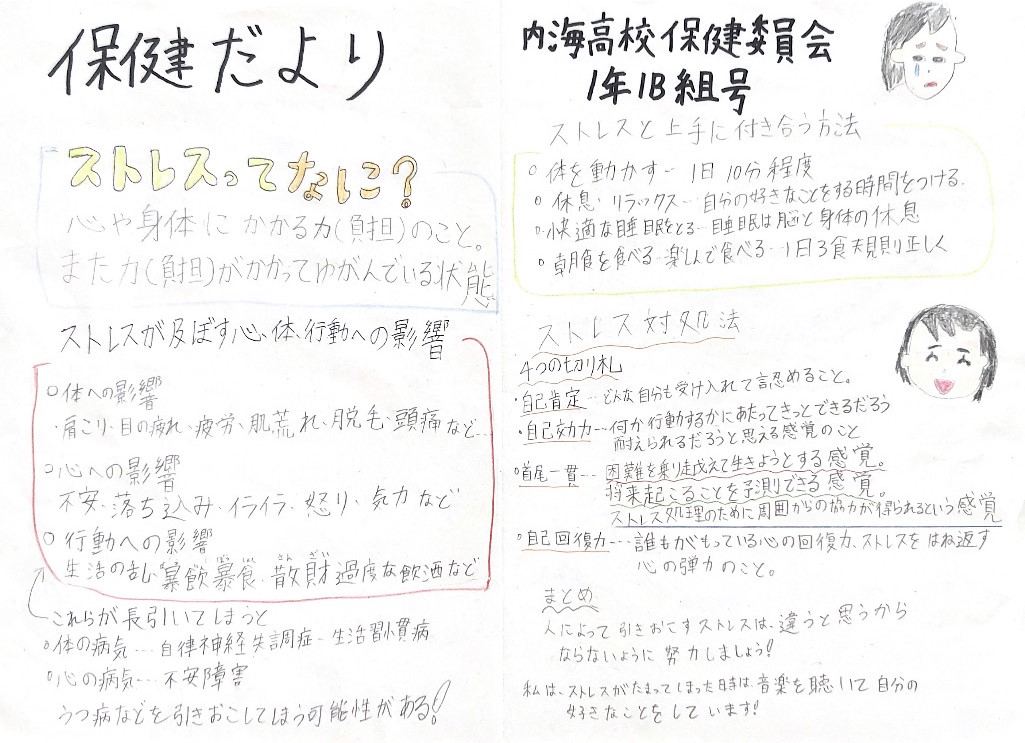 保健だより
ストレスってなに？
心や身体にかかる力(負担)のこと。
また力(負担)がかかってゆがんでいる状態
ストレスが及ぼす心、体、行動への影響
○体への影響
・肩こり、目の疲れ、疲労、肌荒れ、脱毛、頭痛など…
○心への影響
不安、落ち込み、イライラ、怒り、気力など
○行動への影響
生活の乱れ、暴飲暴食、散財、過度な飲酒など
これらが長引いてしまうと
○体の病気…自律神経失調症…生活習慣病
○心の病気…不安障害
うつ病などを引きおこしてしまう可能性がある!
内海高校保健委員会
1年1B組号
ストレスと上手に付き合う方法
○体を動かす…1日10分程度
○休息・リラックス…自分の好きなことをする時間をつける。
○快適な睡眠をとる…睡眠は脳と身体の休息
○朝食を食べる…楽しんで食べる…1日3食規則正しく
ストレス対処法
4つの切り札
・自己肯定…どんな自分も受け入れて認めること。
・自己効力…何か行動するかにあたってきっとできるだろう
耐えられるだろうと思える感覚のこと
・首尾一貫…困難を乗り越えて生きようとする感覚。
将来起こることを予測できる感覚。
ストレス処理のために周囲からの協力が得られるという感覚
・自己回復力…誰もがもっている心の回復力、ストレスをはね返す
心の弾力のこと。
まとめ
人によって引きおこすストレスは、違うと思うから
ならないように努力しましょう!
私は、ストレスがたまってしまった時は、音楽を聴いて自分の
好きなことをしています!